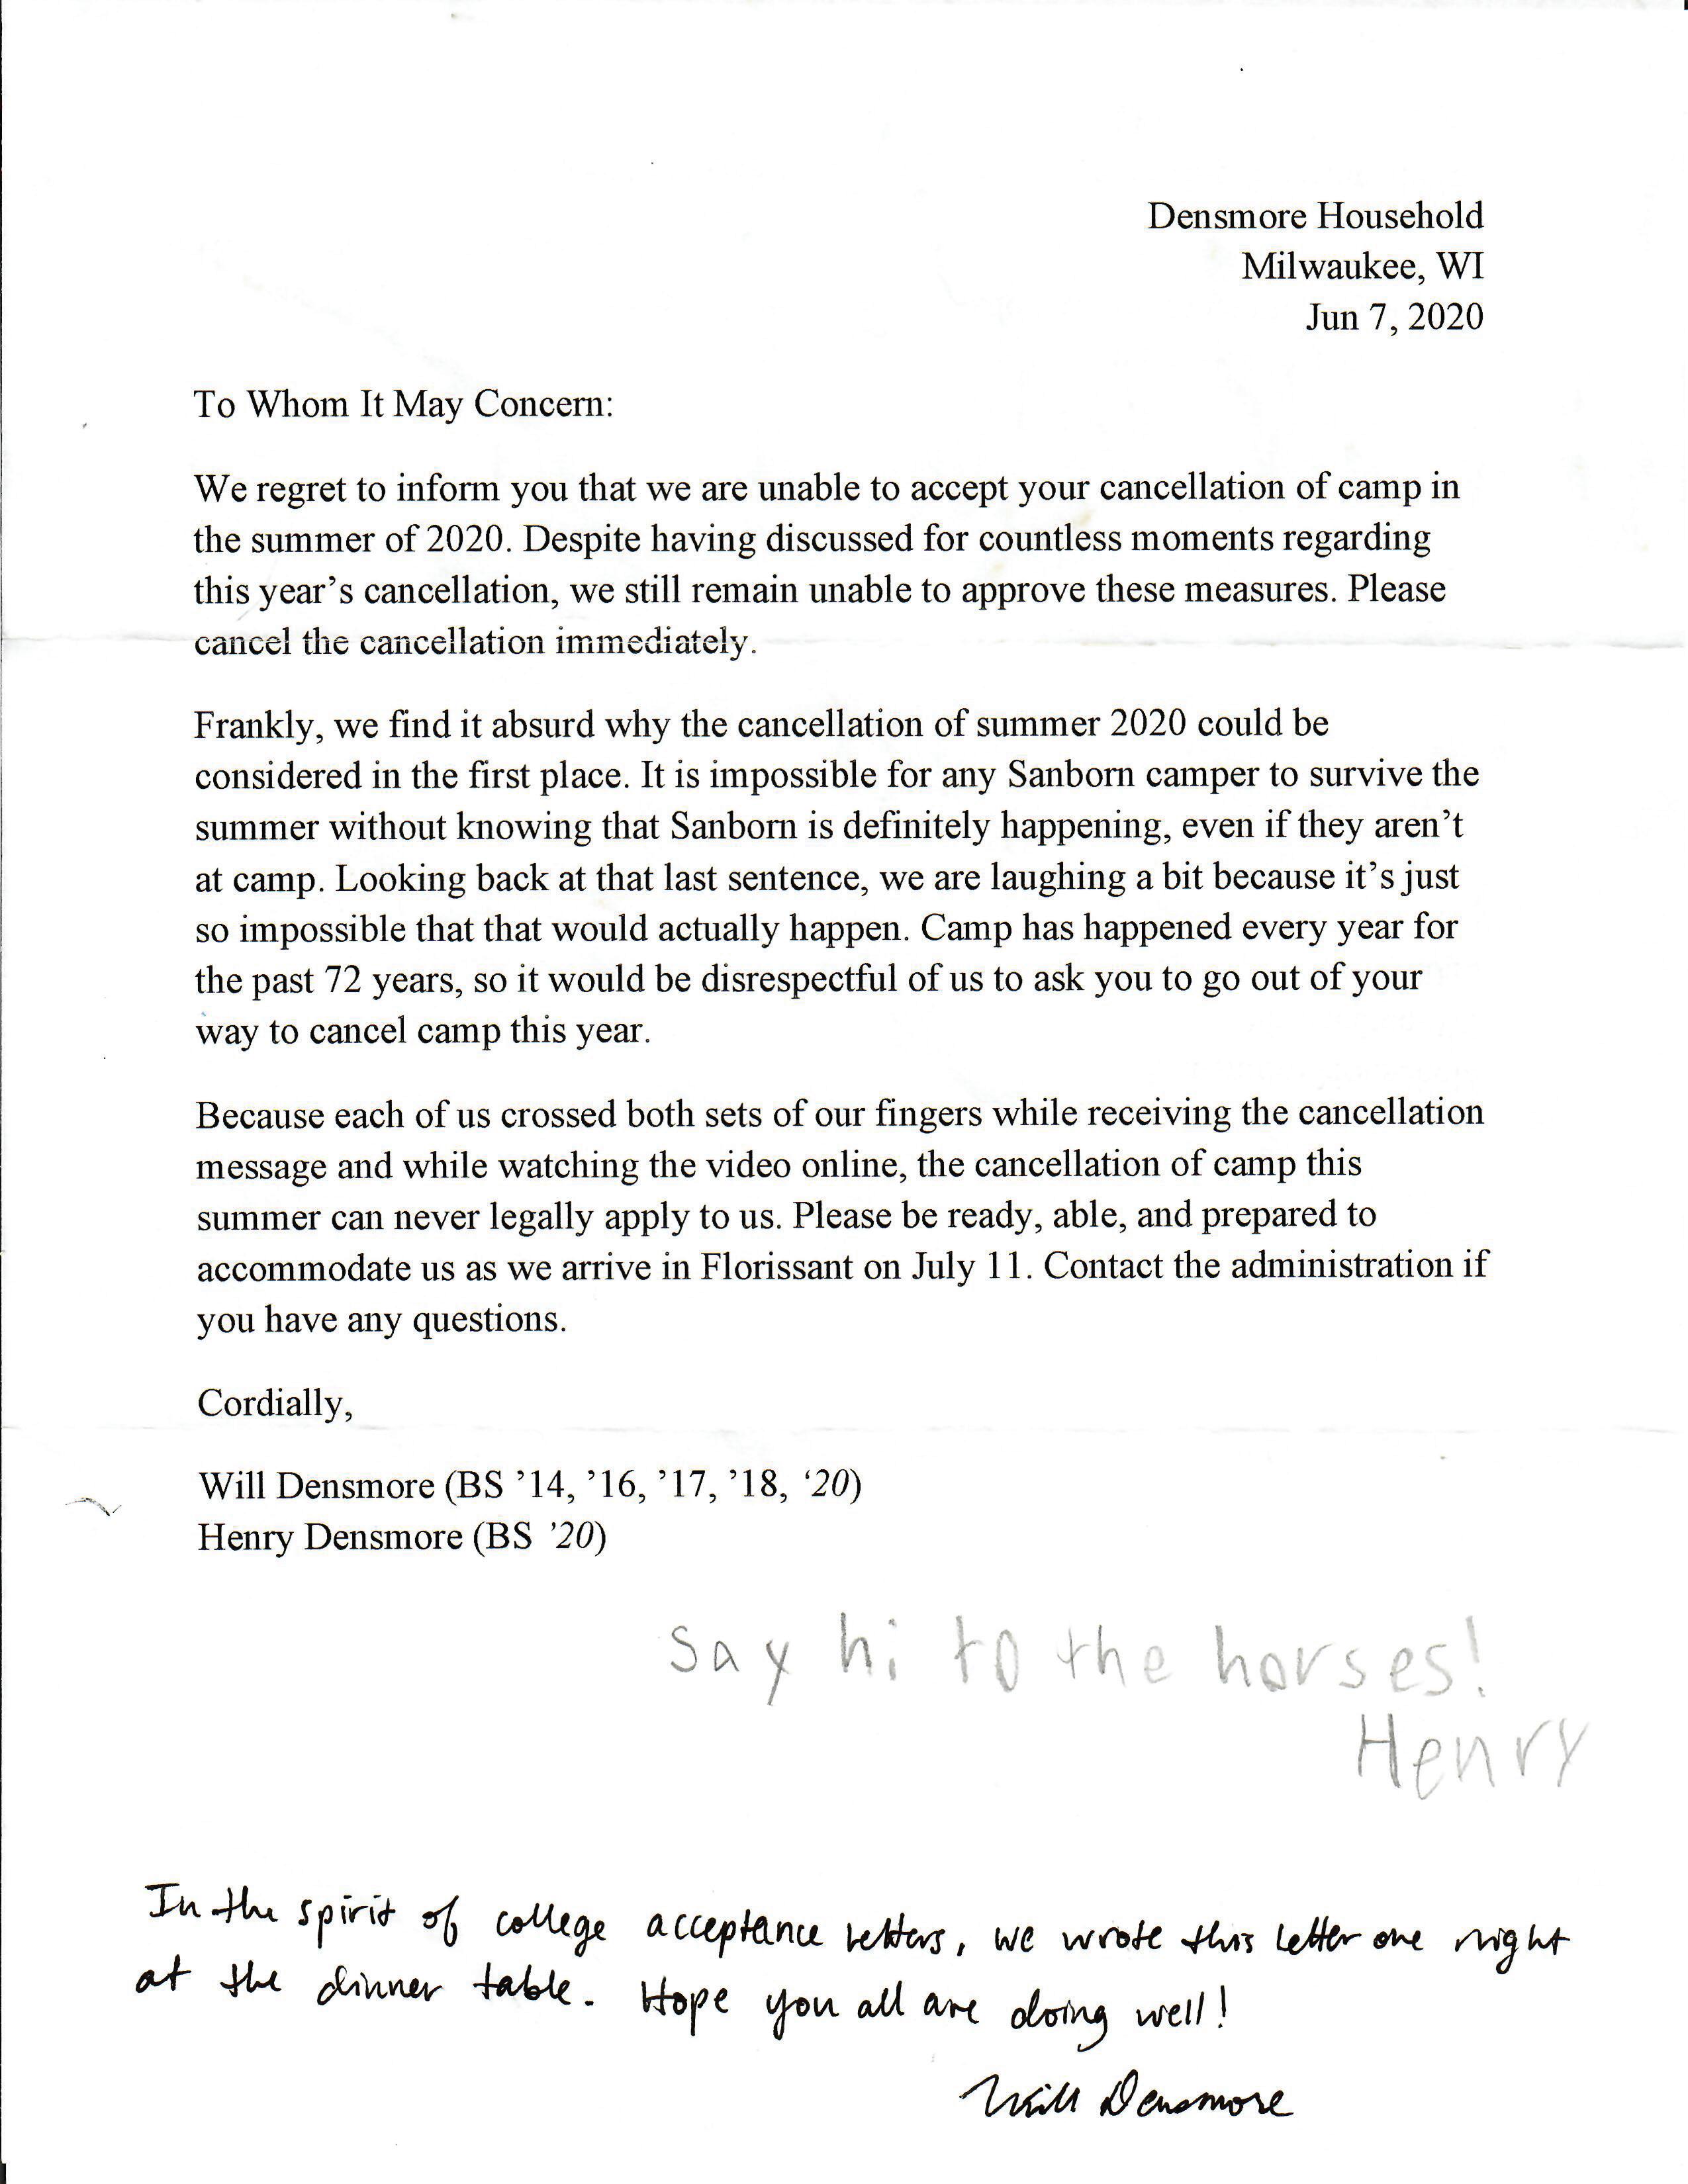 Densmore Household
Milwaukee, WI
Jun 7, 2020
To Whom It May Concern:
We regret to inform you that we are unable to accept your cancellation of camp in
the summer of 2020. Despite having discussed for countless moments regarding
this year’s cancellation, we still remain unable to approve these measures. Please
cancel the cancellation immediately.
Frankly, we find it absurd why the cancellation of summer 2020 could be
considered in the first place. It is impossible for any Sanborn camper to survive the
summer without knowing that Sanborn is definitely happening, even if they aren’t
at camp. Looking back at that last sentence, we are laughing a bit because it’s just
so impossible that that would actually happen. Camp has happened every year for
the past 72 years, so it would be disrespectful of us to ask you to go out of your
way to cancel camp this year.
Because each of us crossed both sets of our fingers while receiving the cancellation
message and while watching the video online, the cancellation of camp this
summer can never legally apply to us. Please be ready, able, and prepared to
accommodate us as we arrive in Florissant on July 11. Contact the administration if
you have any questions.
Cordially,
Will Densmore (BS ’14, ’16, ’17, ’18, ‘20)
Henry Densmore (BS ’20)
Say hi to the horses!
Henry
In the spirit of college acceptance letters, we wrote this letter one night
at the dinner table. Hope you all are doing well!
Will Densmore